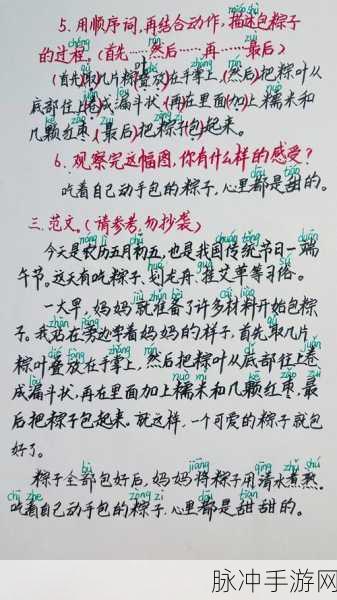 5. 用顺序词,再结合动作,描述包粽子
的过程。(首先……然后……再……最后)
(首先)取几片粽叶叠放在手掌上,(然后)把粽叶从
底部往上卷成漏斗状,(再)在里面(加)上糯米和
几颗红枣,(最后)把粽子(包)起来。
6. 观察完这幅图,你有什么样的感受?
吃着自己动手包的粽子,心里都是甜的。
三.范文。(请参考,勿抄袭)
今天是农历五月初五,也是我国传统节日一端
午节。这天有吃粽子、划龙舟、挂艾草等习俗。
一大早,妈妈就准备了许多材料开始包粽
子。我站在旁边学着妈妈的样子,首先取几片
粽叶叠放在手掌上,然后把粽叶从底部往上卷
成漏斗状,再在里面加上糯米和几颗红枣,最
后把粽子包起来。就这样,一个可爱的粽子就包
好了。
粽子全部包好后,妈妈将粽子用清水煮熟。
吃着自己动手包的粽子,心里都是甜甜的。
脉冲手游网